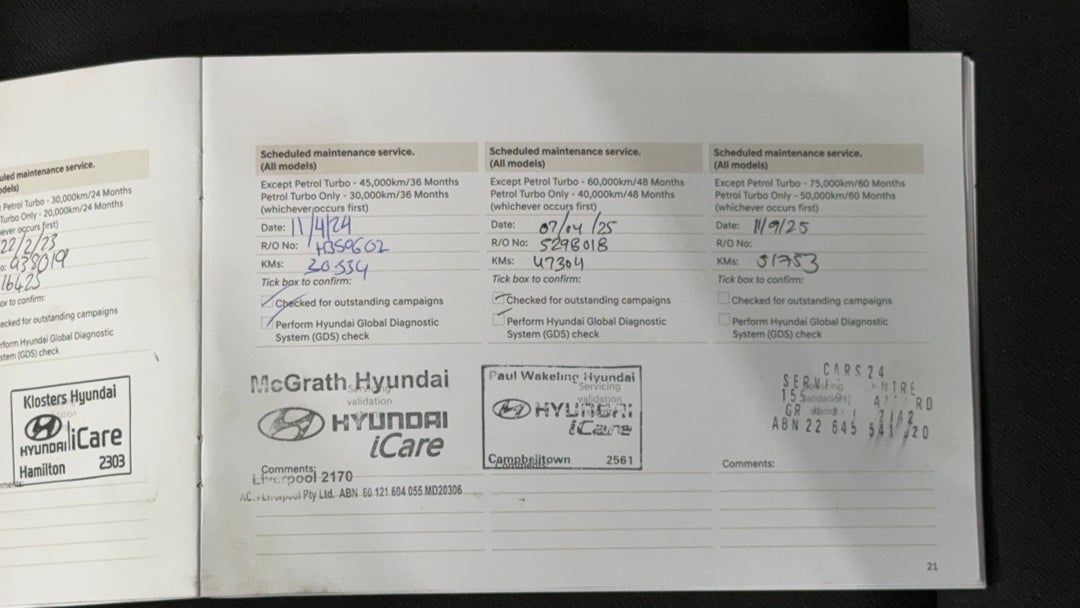 uled maintenance service.
odels)
Petrol Turbo - 30,000km/24 Months
Turbo Only - 20,000km/24 Months
ever occurs first)
22/2/23
o: 938019
16425
ox to confirm:
ecked for outstanding campaigns
rform Hyundai Global Diagnostic
stem (GDS) check
Klosters Hyundai
HYUNDAI iCare
Hamilton 2303
Scheduled maintenance service.
(All models)
Except Petrol Turbo - 45,000km/36 Months
Petrol Turbo Only - 30,000km/36 Months
(whichever occurs first)
Date: 11/4/24
R/O No: H359602
KMs: 30534
Tick box to confirm:
Checked for outstanding campaigns
Perform Hyundai Global Diagnostic
System (GDS) check
McGrath Hyundai
Servicing
validation
HYUNDAI
iCare
Comments:
Liverpool 2170
Liverpool Pty Ltd. ABN 60 121 604 055 MD20306
Scheduled maintenance service.
(All models)
Except Petrol Turbo - 60,000km/48 Months
Petrol Turbo Only - 40,000km/48 Months
(whichever occurs first)
Date: 07/04/25
R/O No: 5298018
KMs: 47304
Tick box to confirm:
Checked for outstanding campaigns
Perform Hyundai Global Diagnostic
System (GDS) check
Paul Wakeling Hyundai
Servicing
validation
HYUNDAI
iCare
Campbelltown 2561
Comments:
Scheduled maintenance service.
(All models)
Except Petrol Turbo - 75,000km/60 Months
Petrol Turbo Only - 50,000km/60 Months
(whichever occurs first)
Date: 11/9/25
R/O No:
KMs: 51753
Tick box to confirm:
Checked for outstanding campaigns
Perform Hyundai Global Diagnostic
System (GDS) check
CARS24
RD
ABN 22 645
Comments:
21